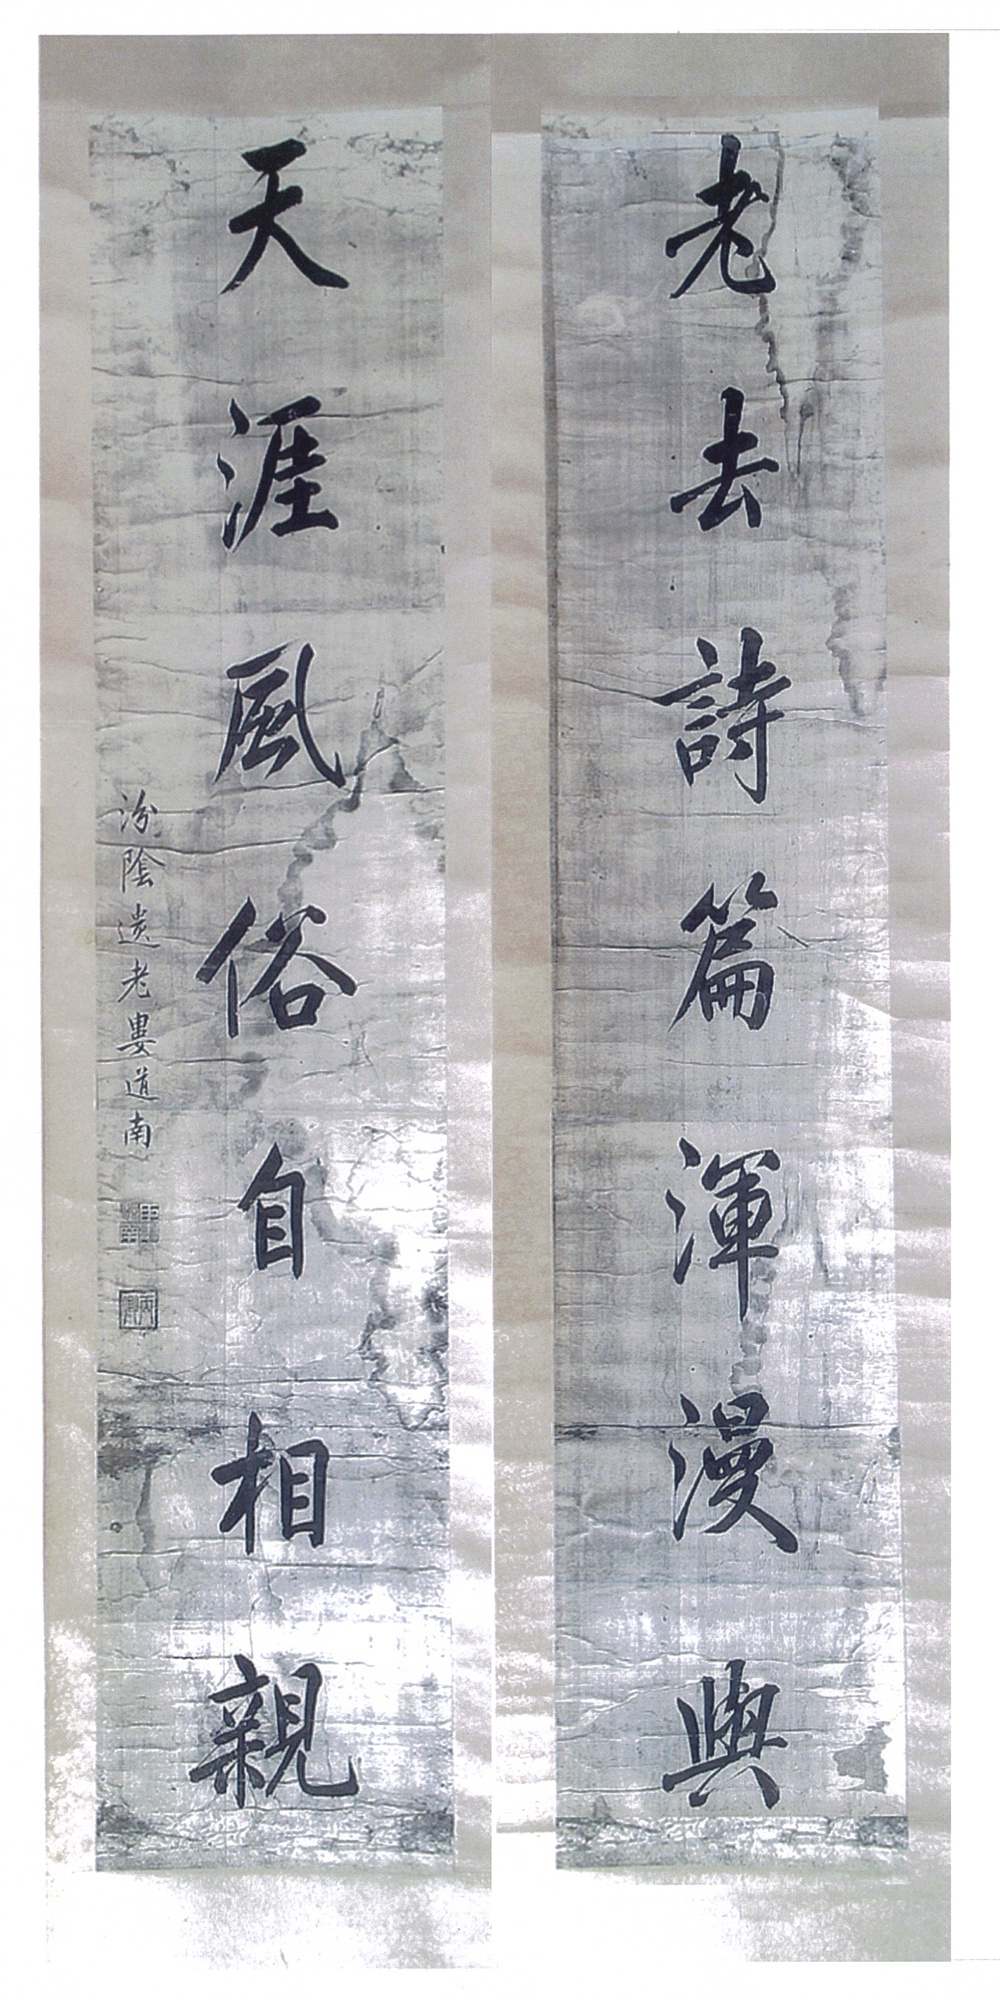 老去詩篇渾漫與
天涯風俗自相親
汾陰遺老婁道南